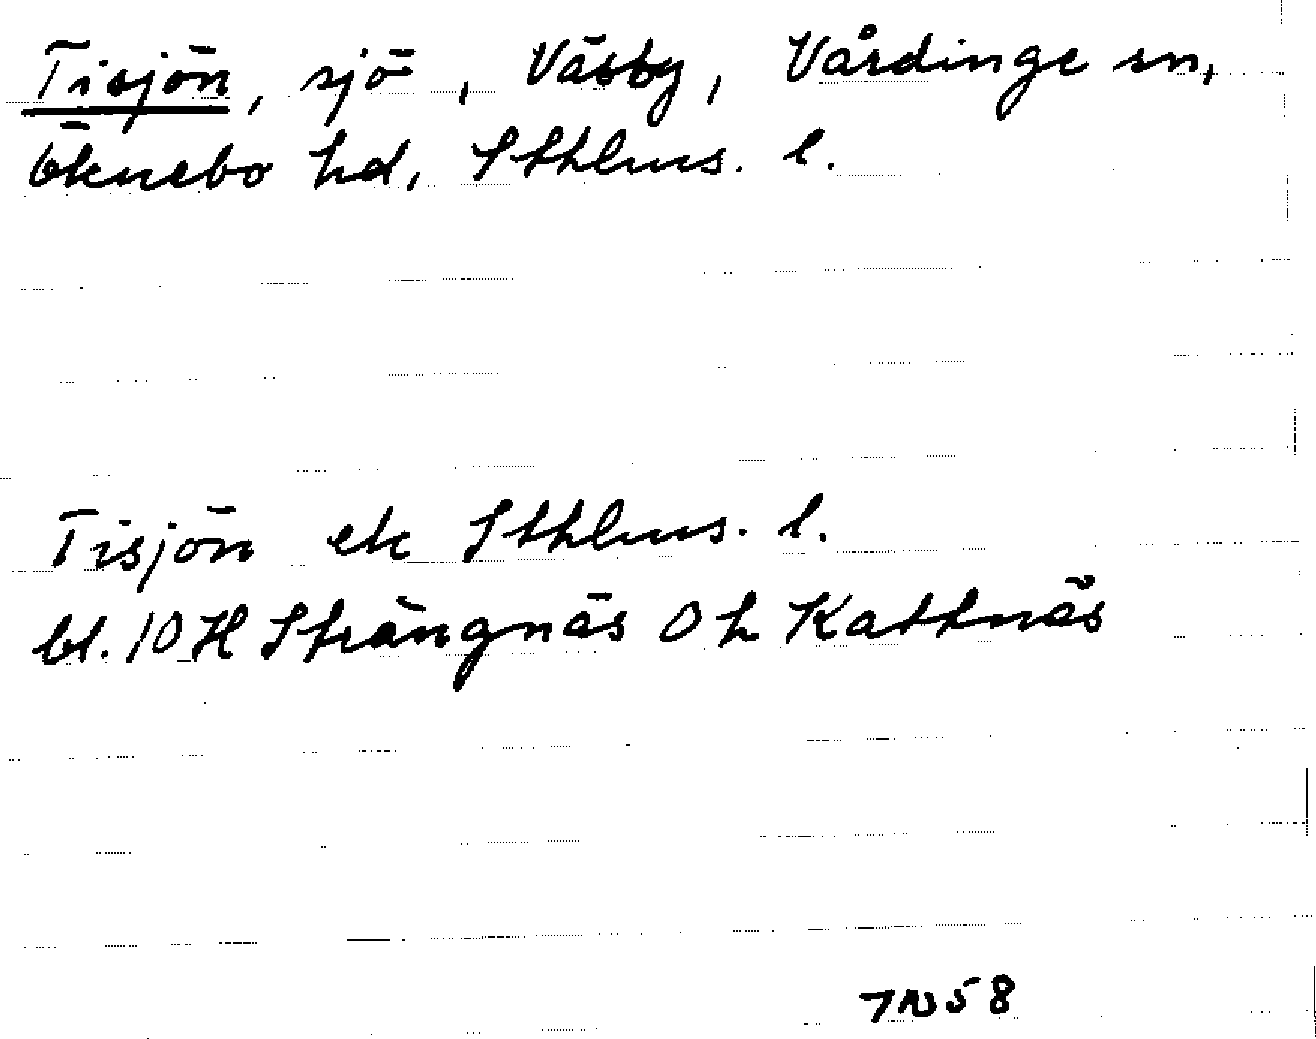 Tisjön, sjö, Väsby, Vårdinge sn,
Öknebo hd, Sthlms. l.
Tisjön ek Sthlms. l.
bl. 10 H Strängnäs 0 h Kattnäs
58